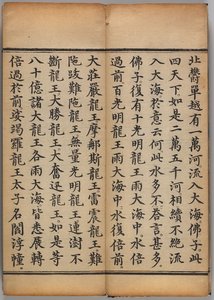 北鬱單越有一萬河流入大海佛子此
四天下如是二萬五千河相續不絕流
入大海於意云何此水多不答言甚多
佛子復有十光明龍王雨大海中水倍
過前百光明龍王雨大海中水復倍前
大莊嚴龍王摩那斯龍王雷震龍王難
陀跋難陀龍王無量光明龍王連澍不
斷龍王大勝龍王大奮迅龍王如是等
八十億諸大龍王各雨大海皆悉展轉
倍過於前娑竭羅龍王太子名閻浮幢